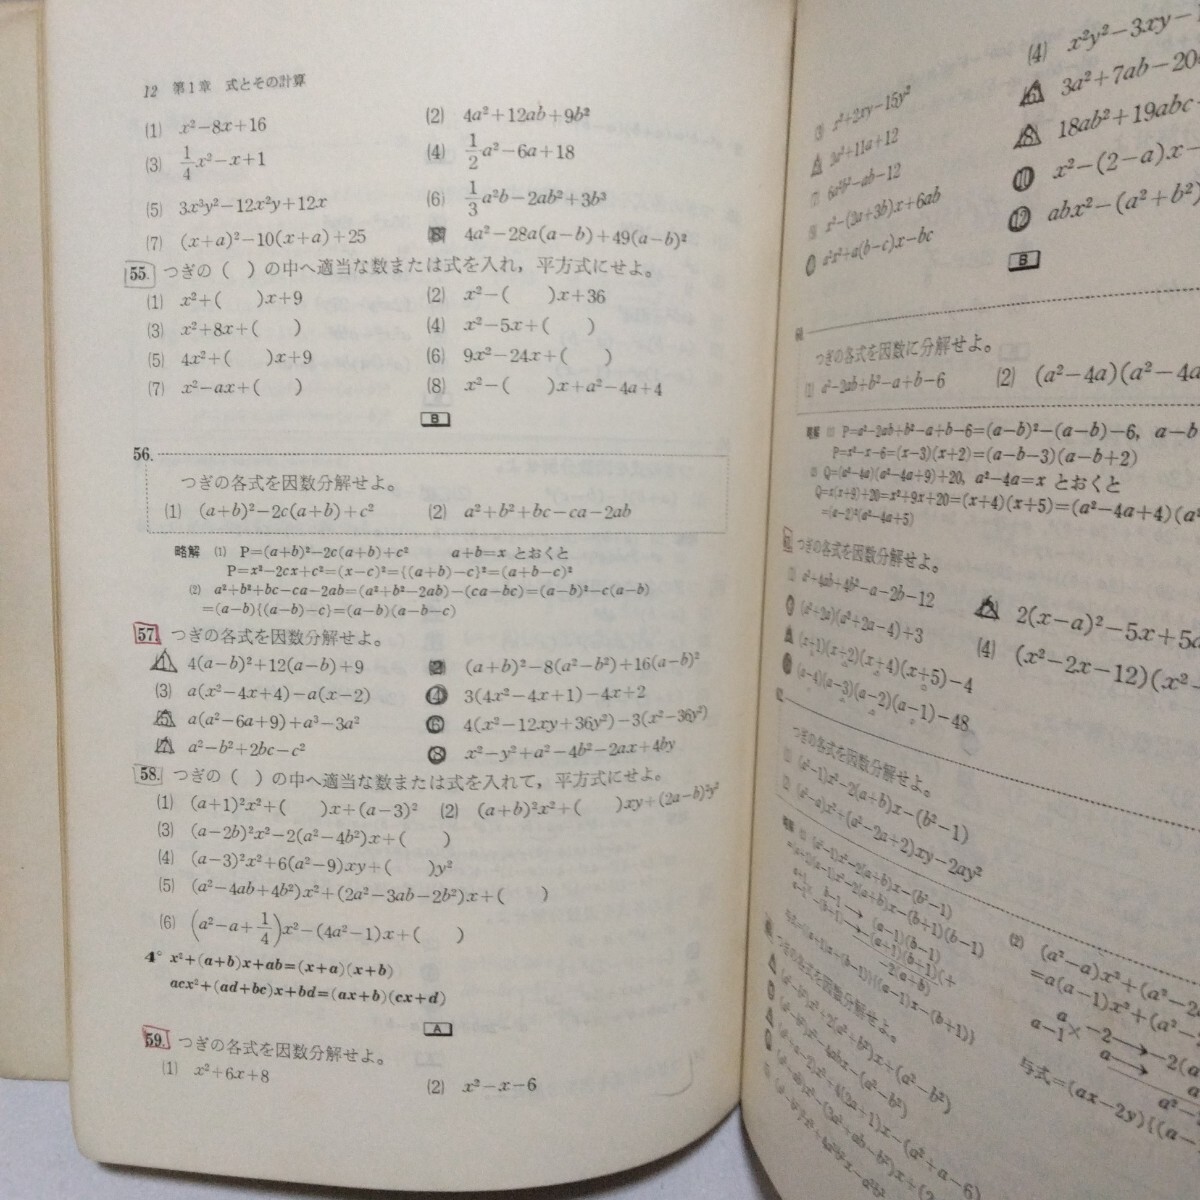 12 第1章 式とその計算
(1) x²−8x+16 (2) 4a²+12ab+9b²
(3) 1/4x²−x+1 (4) 1/2a²−6a+18
(5) 3x³y²−12x²y+12x (6) 1/3a²b−2ab²+3b³
(7) (x+a)²−10(x+a)+25 (8) 4a²−28a(a−b)+49(a−b)²
55. つぎの ( ) の中へ適当な数または式を入れ,平方式にせよ。
(1) x²+( )x+9 (2) x²−( )x+36
(3) x²+8x+( ) (4) x²−5x+( )
(5) 4x²+( )x+9 (6) 9x²−24x+( )
(7) x²−ax+( ) (8) x²−( )x+a²−4a+4
B
56.
つぎの各式を因数分解せよ。
(1) (a+b)²−2c(a+b)+c² (2) a²+b²+bc−ca−2ab
略解 (1) P=(a+b)²−2c(a+b)+c² a+b=x とおくと
P=x²−2cx+c²=(x−c)²={(a+b)−c}²=(a+b−c)²
(2) a²+b²+bc−ca−2ab=(a²+b²−2ab)−(ca−bc)=(a−b)²−c(a−b)
=(a−b){(a−b)−c}=(a−b)(a−b−c)
57. つぎの各式を因数分解せよ。
(1) 4(a−b)²+12(a−b)+9 (2) (a+b)²−8(a²−b²)+16(a−b)²
(3) a(x²−4x+4)−a(x−2) (4) 3(4x²−4x+1)−4x+2
(5) a(a²−6a+9)+a³−3a² (6) 4(x²−12xy+36y²)−3(x²−36y²)
(7) a²−b²+2bc−c² (8) x²−y²+a²−4b²−2ax+4by
58. つぎの ( ) の中へ適当な数または式を入れて,平方式にせよ。
(1) (a+1)²x²+( )x+(a−3)² (2) (a+b)²x²+( )xy+(2a−b)²y²
(3) (a−2b)²x²−2(a²−4b²)x+( )
(4) (a−3)²x²+6(a²−9)xy+( )y²
(5) (a²−4ab+4b²)x²+(2a²−3ab−2b²)x+( )
(6) (a²−a+1/4)x²−(4a²−1)x+( )
4° x²+(a+b)x+ab=(x+a)(x+b)
acx²+(ad+bc)x+bd=(ax+b)(cx+d)
A
59. つぎの各式を因数分解せよ。
(1) x²+6x+8 (2) x²−x−6
(3) x²+2xy−15y² (4) x²y²−3xy−
2a²+11a+12 (6) 3a²+7ab−20
(7) 6a²b²−ab−12 (8) 18ab²+19abc−
x²−(2a+3b)x+6ab (10) x²−(2−a)x−
a²x²+a(b−c)x−bc (12) abx²−(a²+b²)
B
60.
つぎの各式を因数に分解せよ。
(1) a²−2ab+b²−a+b−6 (2) (a²−4a)(a²−4a
略解 (1) P=a²−2ab+b²−a+b−6=(a−b)²−(a−b)−6, a−b
P=x²−x−6=(x−3)(x+2)=(a−b−3)(a−b+2)
(2) Q=(a²−4a)(a²−4a+9)+20, a²−4a=x とおくと
Q=x(x+9)+20=x²+9x+20=(x+4)(x+5)=(a²−4a+4)(a²
=(a−2)²(a²−4a+5)
つぎの各式を因数分解せよ。
a²+4ab+4b²−a−2b−12 2(x−a)²−5x+5a
(a²+2a)(a²+2a−4)+3 (4) (x²−2x−12)(x²−
(x+1)(x+2)(x+4)(x+5)−4
(a−4)(a−3)(a−2)(a−1)−48
つぎの各式を因数分解せよ。
(1) (a²−1)x²−2(a+b)x−(b²−1)
(2) (a²−a)x²+(a²−2a+2)xy−2ay²
略解 (1) (a²−1)x²−2(a+b)x−(b²−1)
=(a+1)(a−1)x²−2(a+b)x−(b+1)(b−1)
(2) (a²−a)x²+(a²−2a
=a(a−1)x²+(a²−2
つぎの各式を因数分解せよ。
与式=(ax−2y){(a−